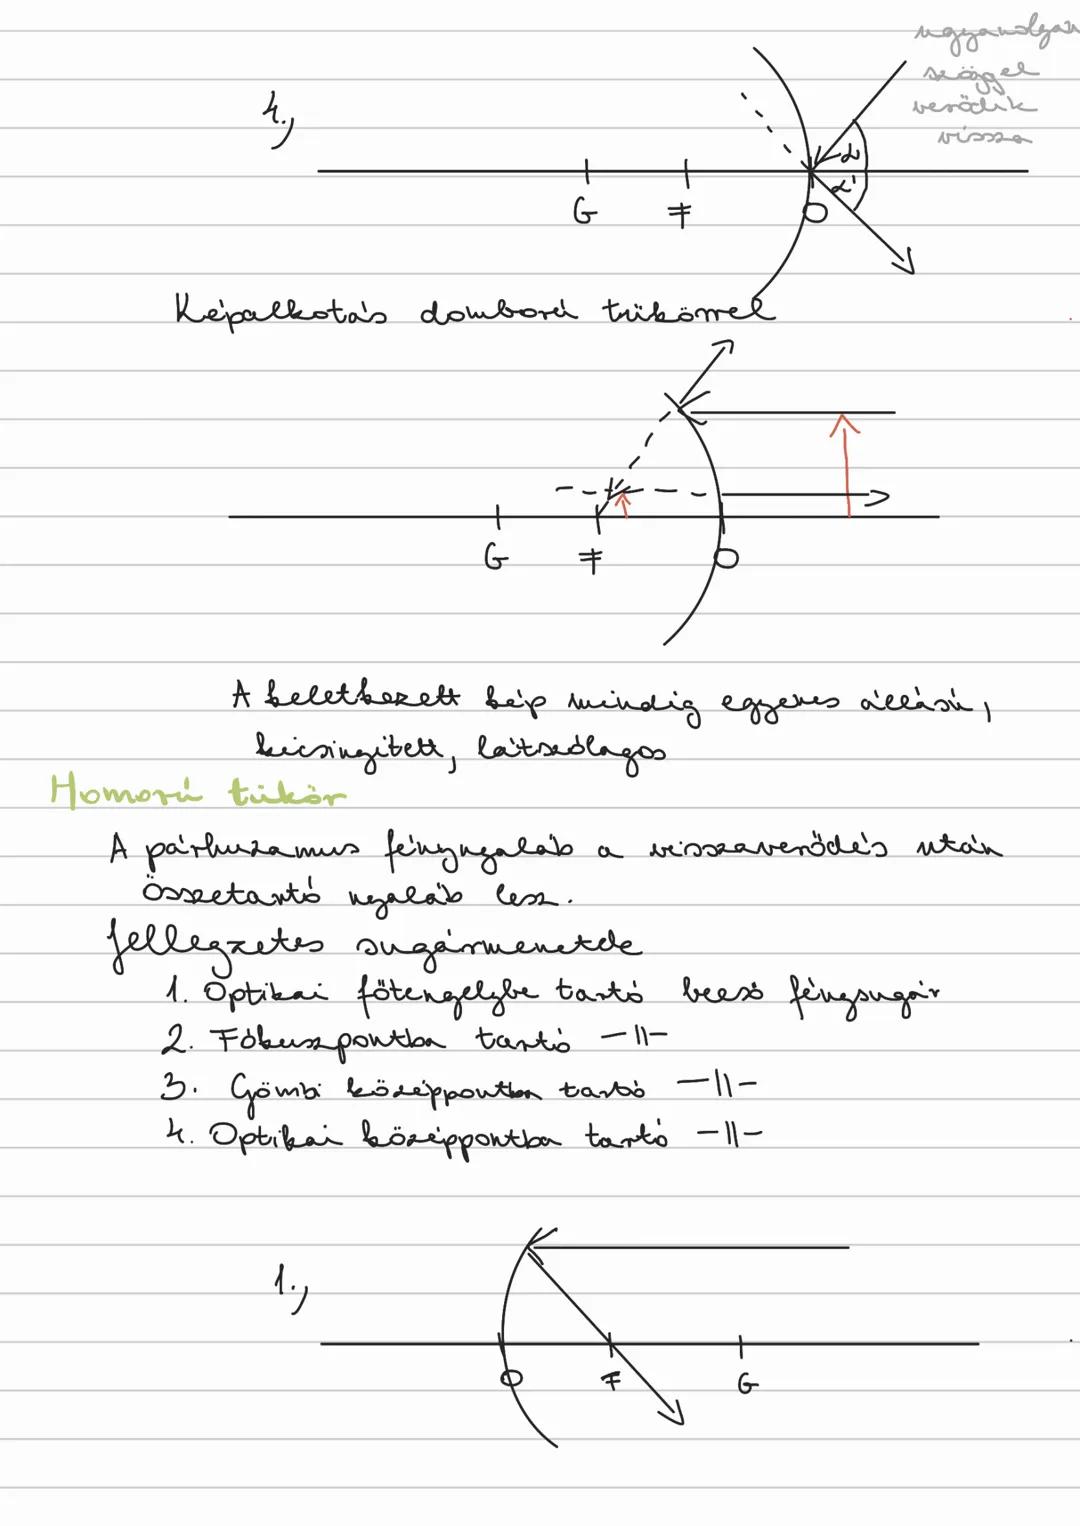 ugyanolyan
szöggel
verődik
vissza
4.,
α
α'
G F O
Képalkotás domború tükörrel
G F O
A keletkezett kép mindig egyenes állású,
kicsinyített, látszólagos
Homorú tükör
A párhuzamus fénynyaláb a visszaverődés után
összetartó nyaláb lesz.
Jellegzetes sugármenetek
1. Optikai főtengelybe tartó beeső fénysugár
2. Fókuszpontba tartó -||-
3. Gömbi középpontba tartó -||-
4. Optikai középpontba tartó -||-
1.,
O F G